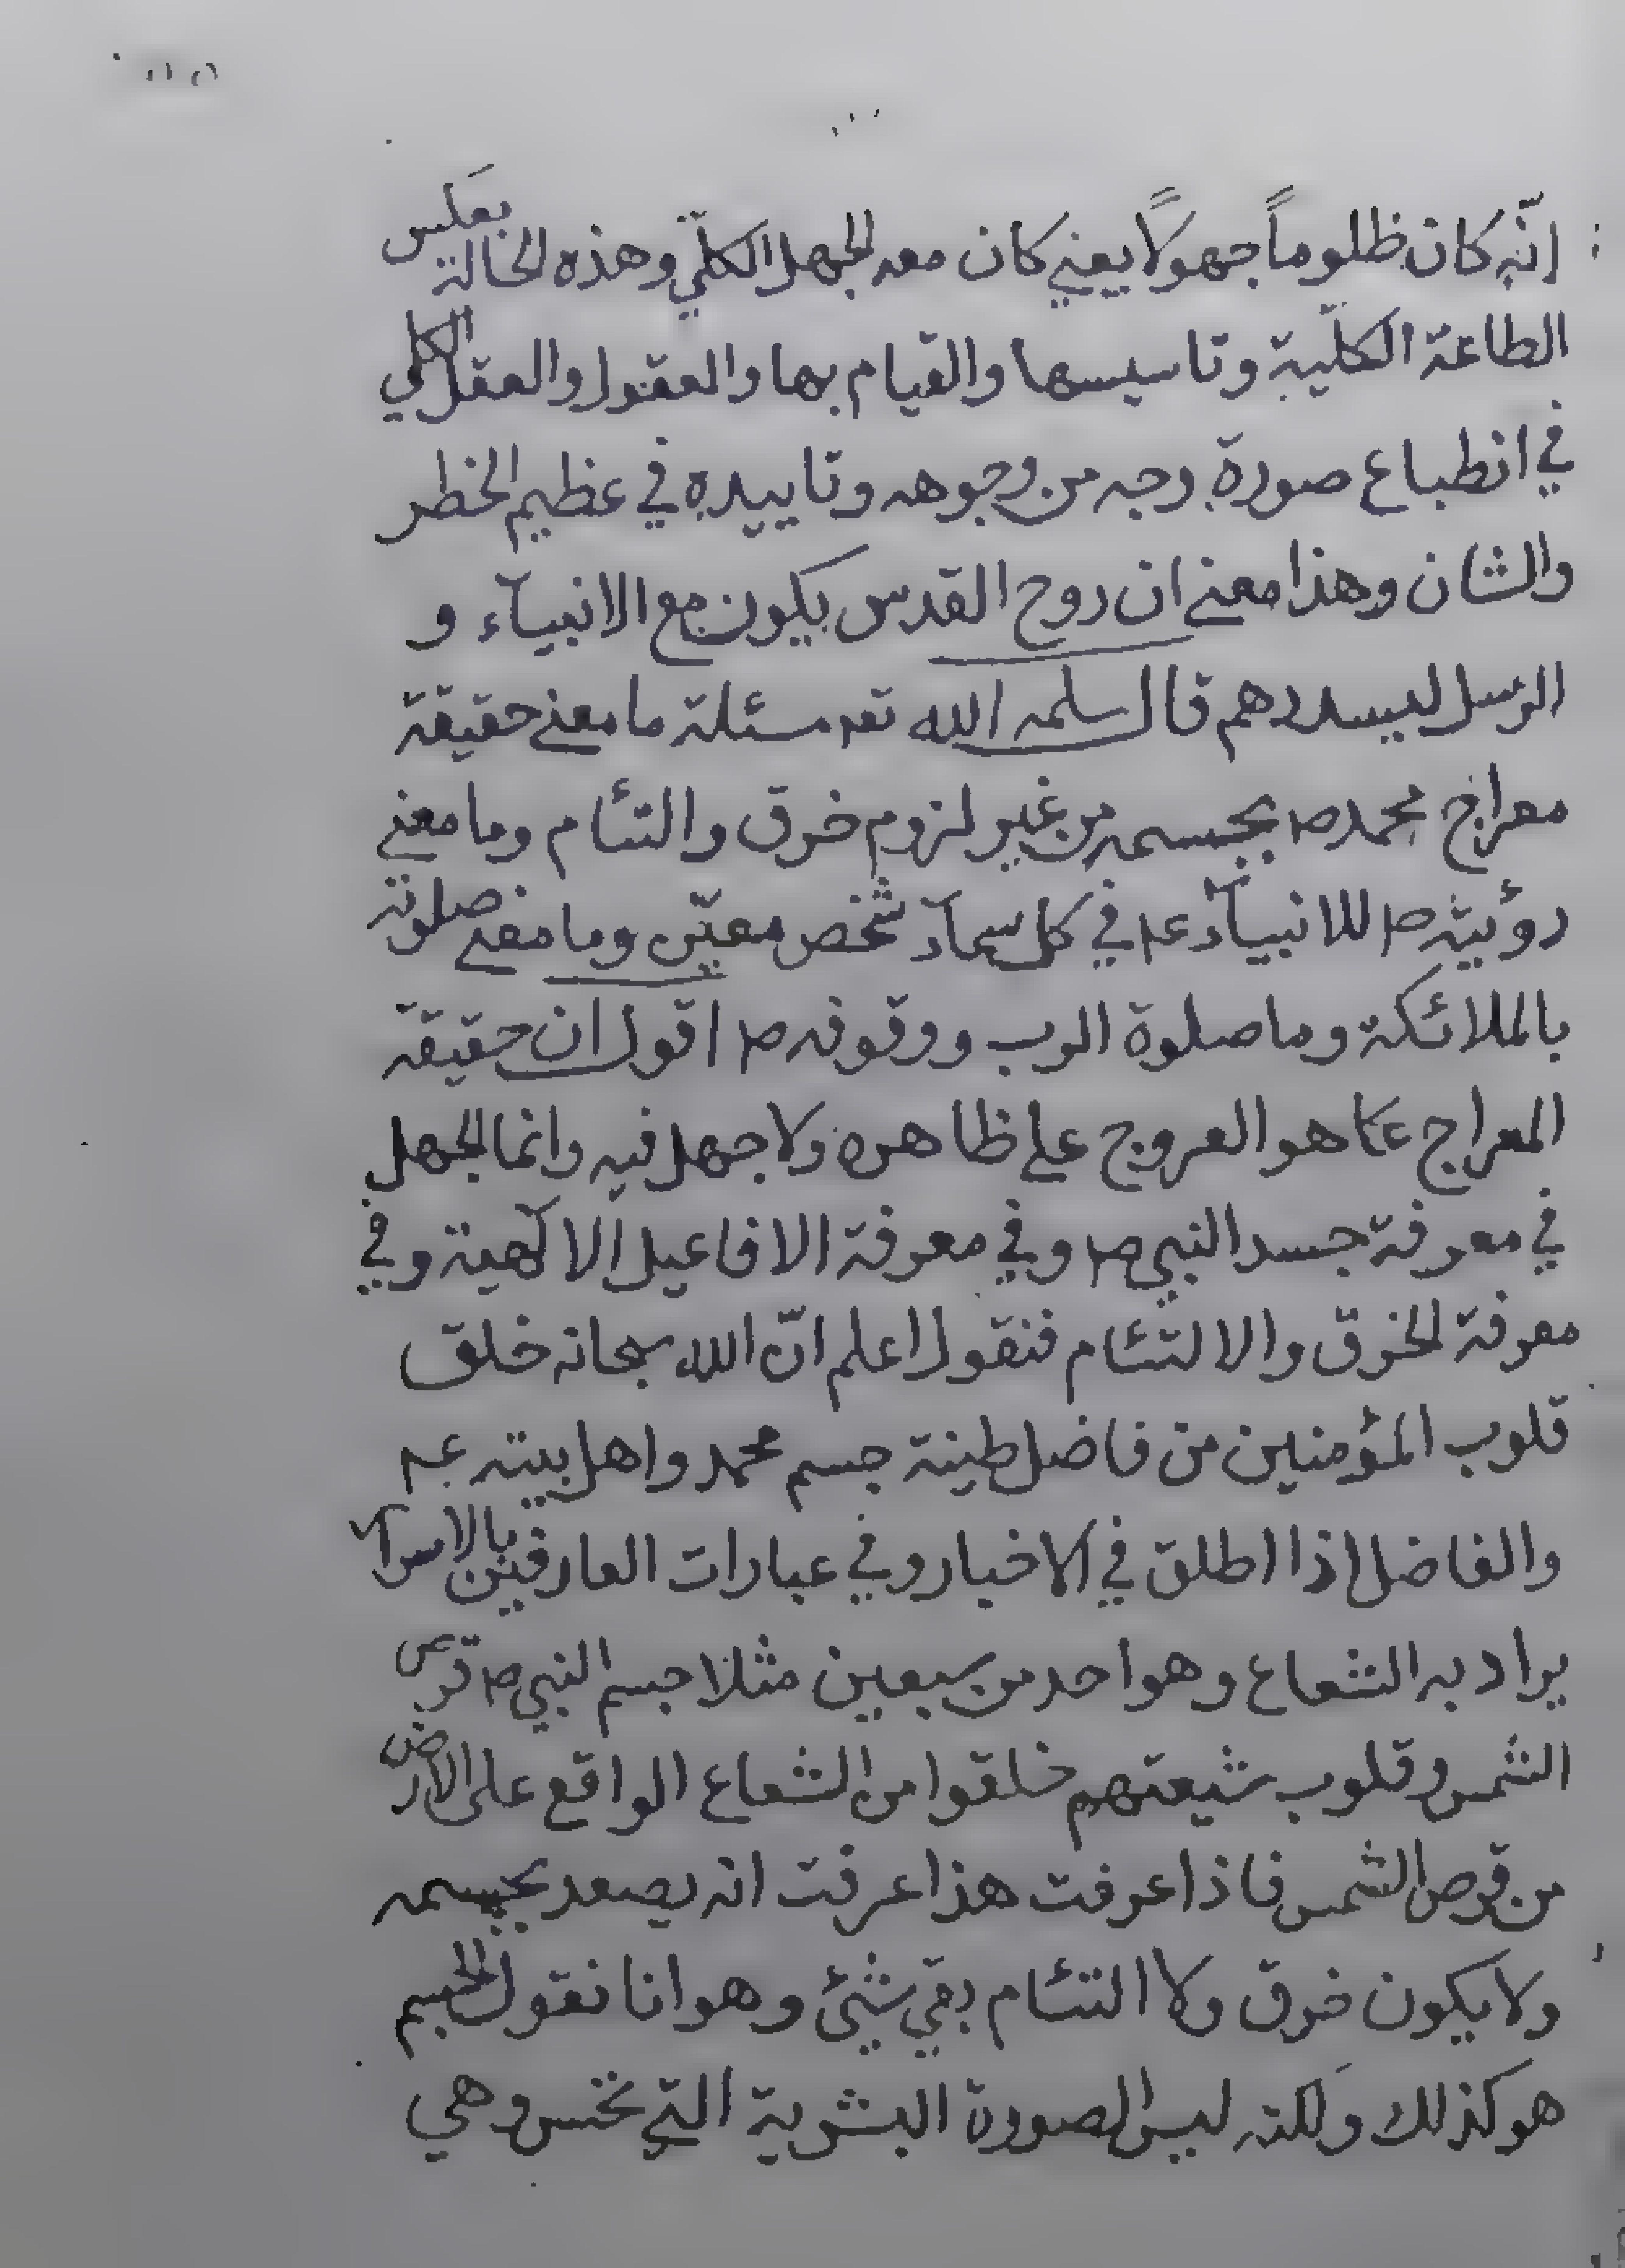 انّه كان ظلوماً جهولاً يعني كان معه الجهل الكلّي وهذه الحالة بعكس
الطاعة الكلّية وتاسيسها والقيام بها والعقول والعقل الكلي
في انطباع صورة وجه من وجوهه وتاييده في عظيم الخطر
والشان وهذا معنى ان روح القدس يكون مع الانبيآء و
الرسل ليسددهم قال سلمه الله تعه مسئلة ما معنى حقيقة
معراج محمد ص بجسمه من غير لزوم خرق والتئام وما معنى
رؤيته ص للانبيآء عم في كل سمآء شخص معيّن وما معنى صلوته
بالملائكة وما صلوة الرب ووقوفه ص اقول ان حقيقة
المعراج هو العروج على ظاهره ولا جهل فيه وانما الجهل
في معرفة جسد النبي ص وفي معرفة الافاعيل الالهية وفي
معرفة الخرق والالتئام فنقول اعلم انّ الله سبحانه خلق
قلوب المؤمنين من فاضل طينة جسم محمد واهل بيته عم
والفاضل اذا اطلق في الاخبار وفي عبارات العارفين بالاسرار
يراد به الشعاع وهو احد من سبعين مثلا جسم النبي ص قرص
الشمس وقلوب شيعتهم خلقوا من الشعاع الواقع على الارض
من قرص الشمس فاذا عرفت هذا عرفت انه يصعد بجسمه
ولا يكون خرق ولا التئام بقي شئ وهو انا نقول الجسم
هو كذلك ولكنه ليس الصورة البشرية التي تحس وهي